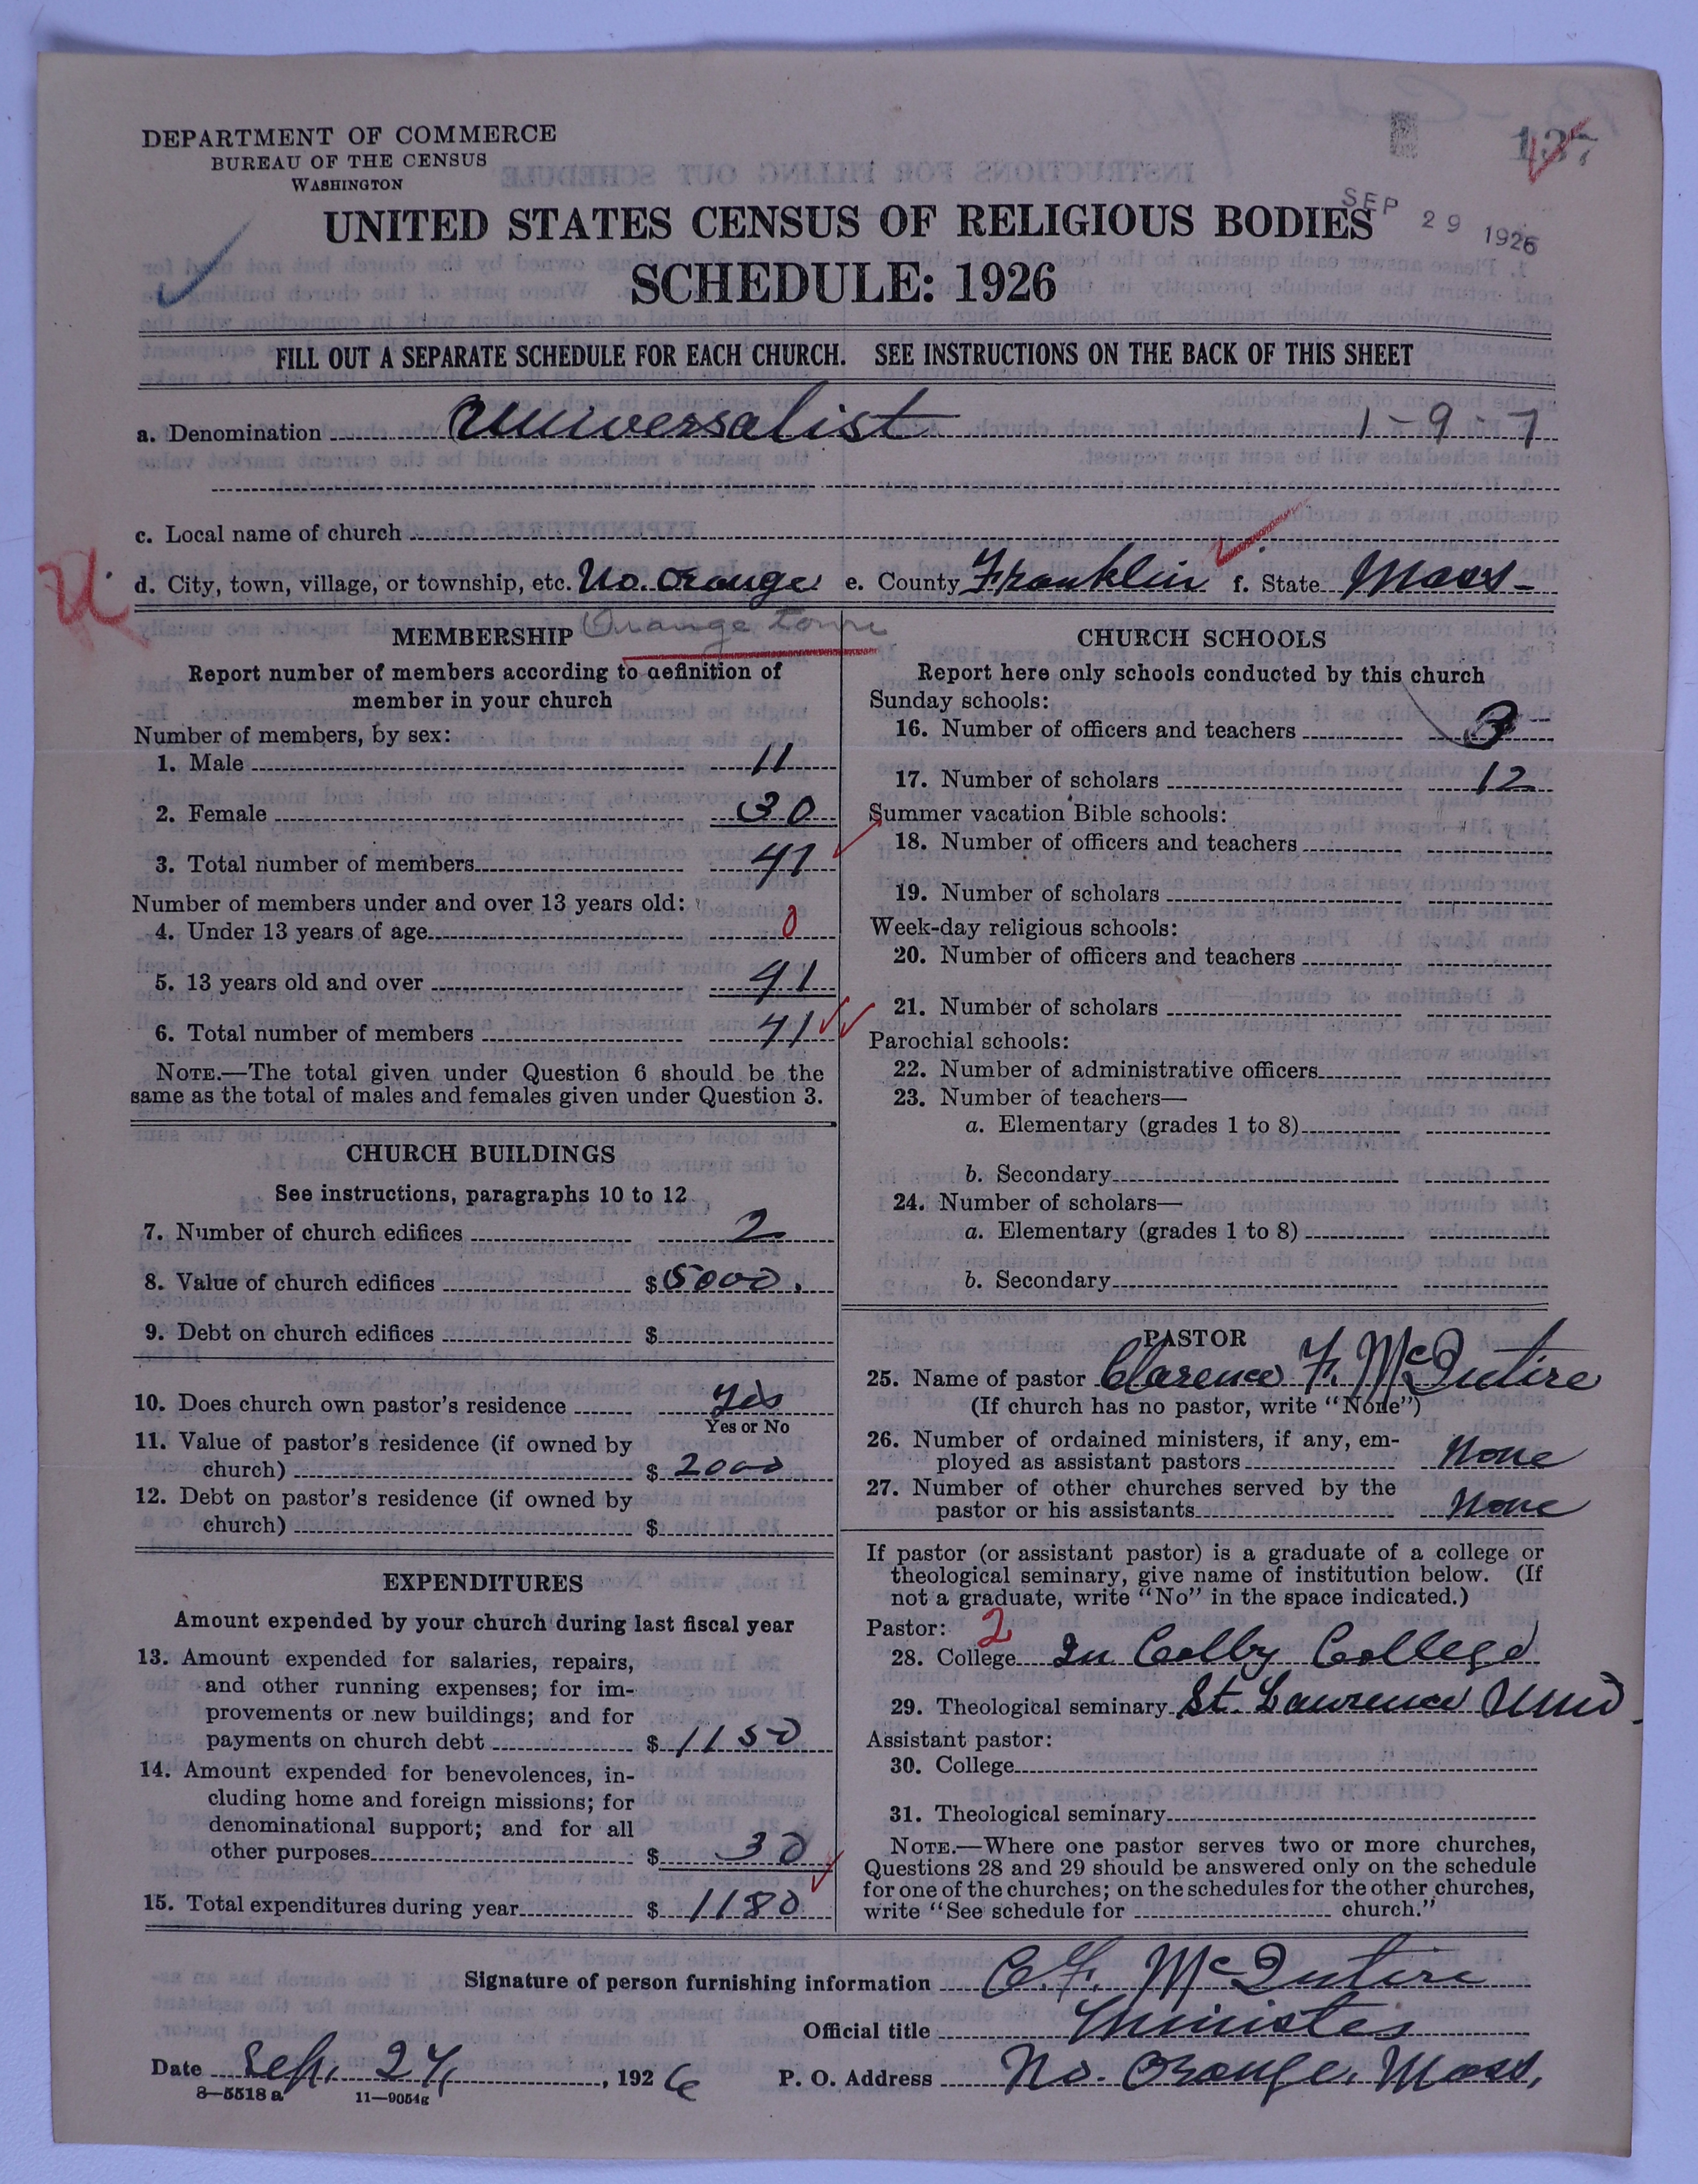 DEPARTMENT OF COMMERCE
BUREAU OF THE CENSUS
WASHINGTON
137
SEP 29 1926
UNITED STATES CENSUS OF RELIGIOUS BODIES
SCHEDULE: 1926
FILL OUT A SEPARATE SCHEDULE FOR EACH CHURCH. SEE INSTRUCTIONS ON THE BACK OF THIS SHEET
a. Denomination Universalist 1-9-7
c. Local name of church
d. City, town, village, or township, etc. No. Orange e. County Franklin f. State Mass-
Orange town
MEMBERSHIP
Report number of members according to definition of
member in your church
Number of members, by sex:
1. Male 11
2. Female 30
3. Total number of members 41
Number of members under and over 13 years old:
4. Under 13 years of age 0
5. 13 years old and over 41
6. Total number of members 41
NOTE.—The total given under Question 6 should be the
same as the total of males and females given under Question 3.
CHURCH BUILDINGS
See instructions, paragraphs 10 to 12
7. Number of church edifices 2
8. Value of church edifices $ 5000.
9. Debt on church edifices $
10. Does church own pastor's residence Yes
Yes or No
11. Value of pastor's residence (if owned by
church) $ 2000
12. Debt on pastor's residence (if owned by
church) $
EXPENDITURES
Amount expended by your church during last fiscal year
13. Amount expended for salaries, repairs,
and other running expenses; for im-
provements or new buildings; and for
payments on church debt $ 1150
14. Amount expended for benevolences, in-
cluding home and foreign missions; for
denominational support; and for all
other purposes $ 30
15. Total expenditures during year $ 1180
CHURCH SCHOOLS
Report here only schools conducted by this church
Sunday schools:
16. Number of officers and teachers 3
17. Number of scholars 12
Summer vacation Bible schools:
18. Number of officers and teachers
19. Number of scholars
Week-day religious schools:
20. Number of officers and teachers
21. Number of scholars
Parochial schools:
22. Number of administrative officers
23. Number of teachers—
a. Elementary (grades 1 to 8)
b. Secondary
24. Number of scholars—
a. Elementary (grades 1 to 8)
b. Secondary
PASTOR
25. Name of pastor Clarence F. McIntire
(If church has no pastor, write "None")
26. Number of ordained ministers, if any, em-
ployed as assistant pastors None
27. Number of other churches served by the
pastor or his assistants None
If pastor (or assistant pastor) is a graduate of a college or
theological seminary, give name of institution below. (If
not a graduate, write "No" in the space indicated.)
Pastor: 2
28. College In Colby College
29. Theological seminary St. Lawrence Univ.
Assistant pastor:
30. College
31. Theological seminary
NOTE.—Where one pastor serves two or more churches,
Questions 28 and 29 should be answered only on the schedule
for one of the churches; on the schedules for the other churches,
write "See schedule for church."
Signature of person furnishing information C. F. McIntire
Official title Minister
Date Sep. 24, 1926 P. O. Address No. Orange, Mass.
8—5518 a 11—9054g